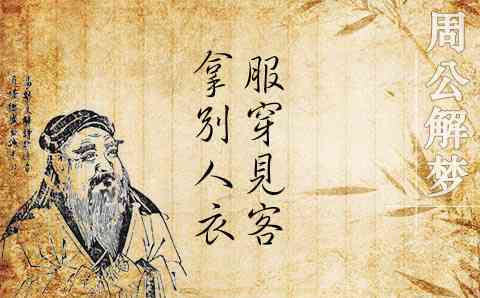 周公解梦
拿別人衣
服穿見客